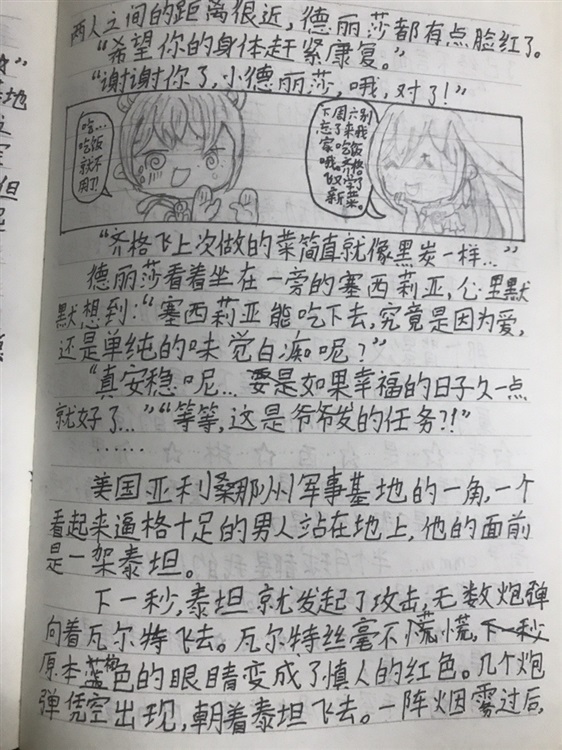 两人之间的距离很近，德丽莎都有点脸红了。
“希望你的身体赶紧康复。”
“谢谢你了，小德丽莎，哦，对了！”
吃…
吃饭
就不
用了!
下周六别
忘了来我
家吃饭
哦。齐格
飞学了
新菜。
“齐格飞上次做的菜简直就像黑炭一样…”
德丽莎看着坐在一旁的塞西莉亚，心里默
默想到：“塞西莉亚能吃下去，究竟是因为爱，
还是单纯的味觉白痴呢？”
“真安稳呢… 要是如果幸福的日子久一点
就好了…”“等等，这是爷爷发的任务?!”
……
美国亚利桑那州军事基地的一角，一个
看起来逼格十足的男人站在地上，他的面前
是一架泰坦。
下一秒，泰坦就发起了攻击，无数炮弹
向着瓦尔特飞去。瓦尔特丝毫不慌，下一秒
原本蓝色的眼睛变成了慎人的红色。几个炮
弹凭空出现，朝着泰坦飞去。一阵烟雾过后，